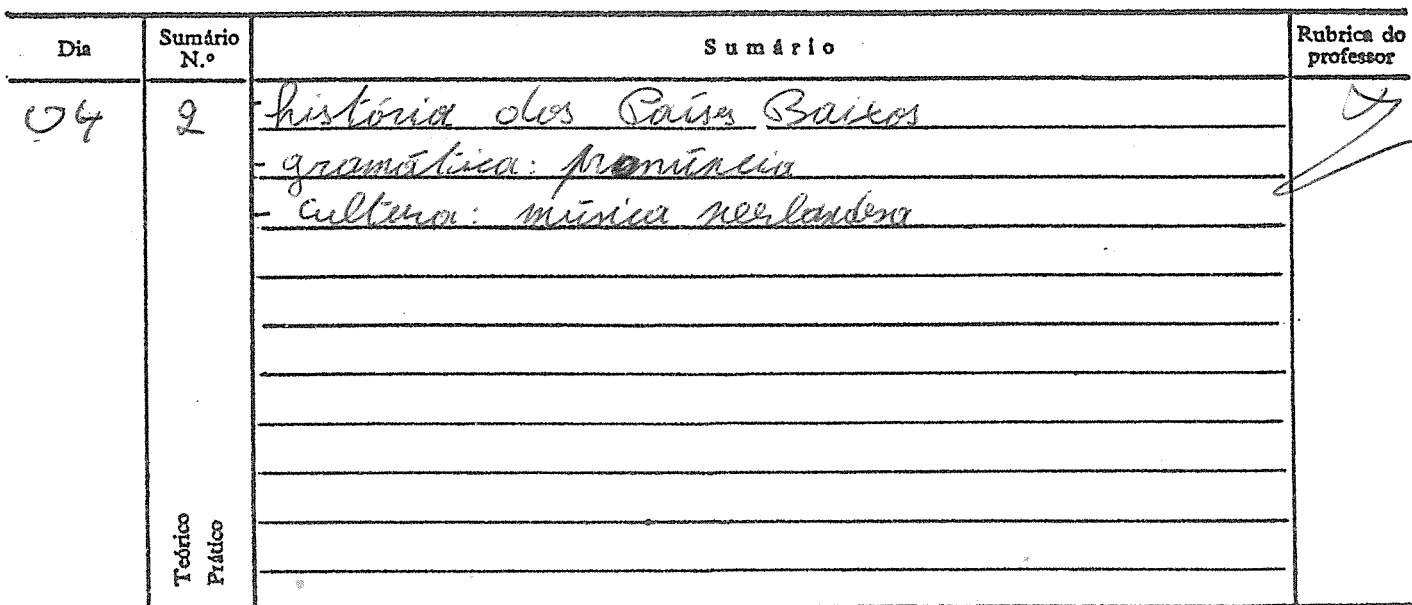 Dia Sumário N.º Sumário Rubrica do professor
04 2 - história dos Países Baixos
- gramática: pronúncia
- cultura: música neerlandesa
Teórico
Prático